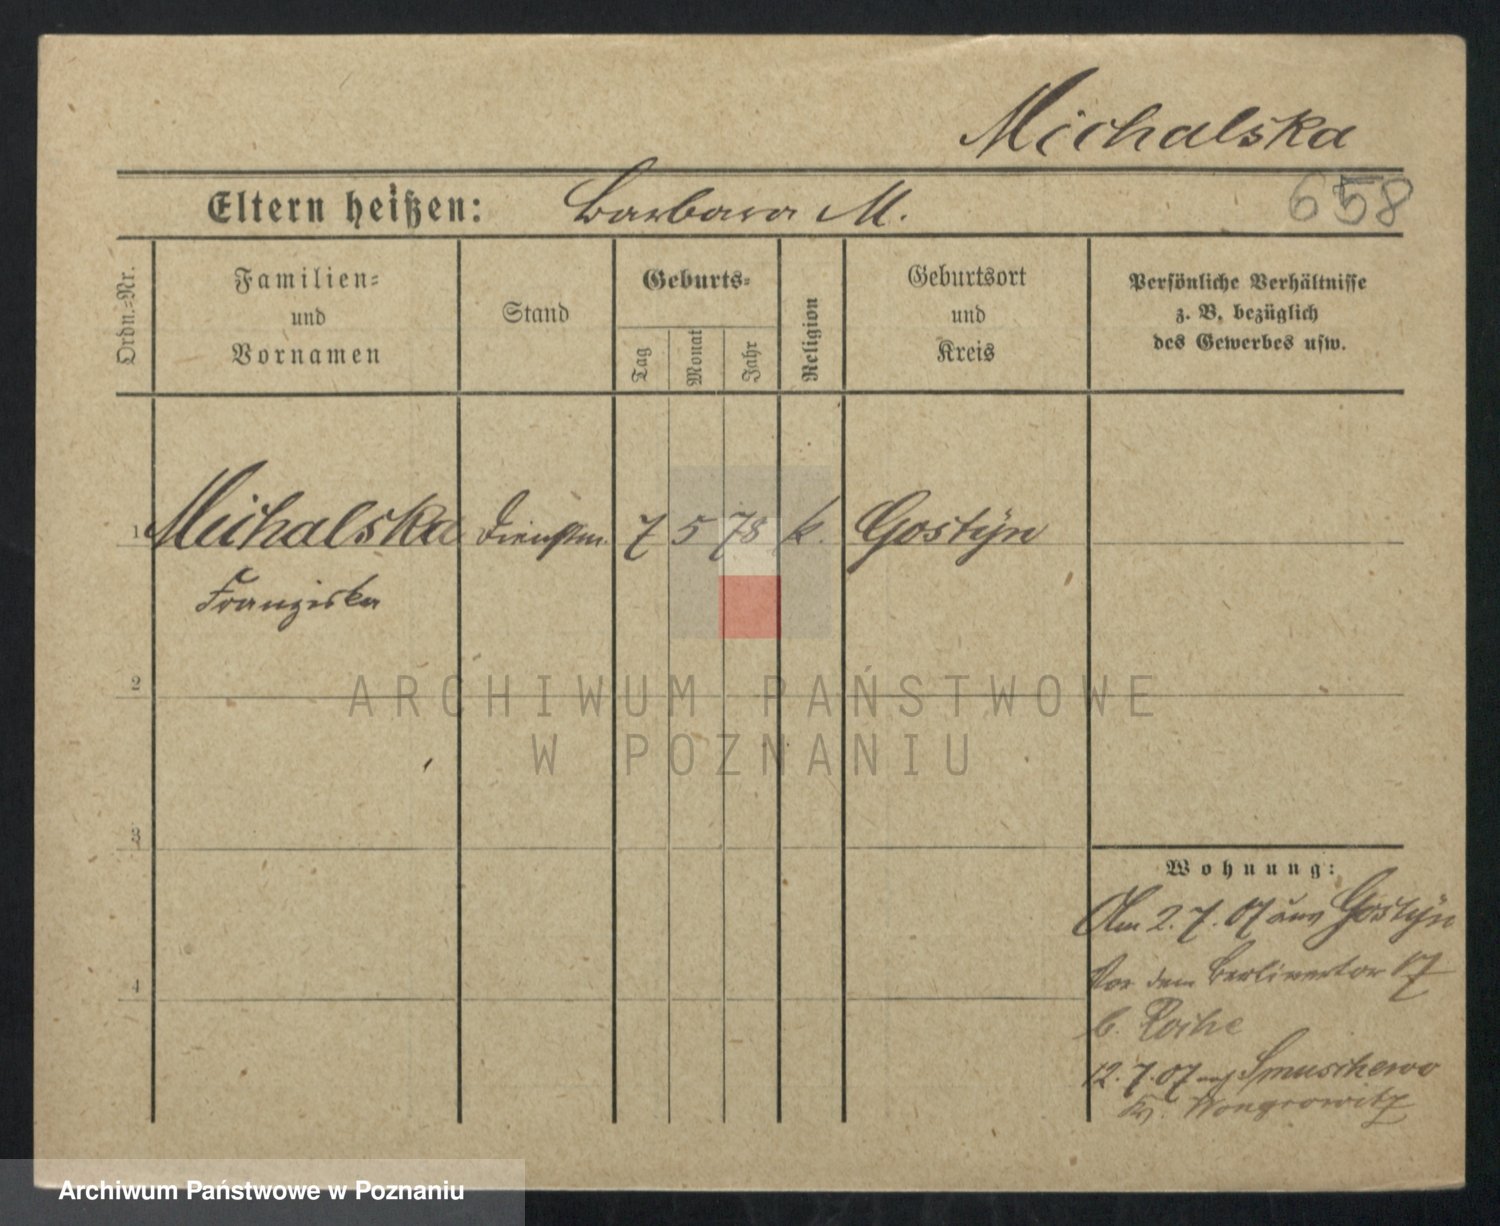 Michalska
658
Eltern heißen: Barbara M.
Ordn.=Nr.
Familien=
und
Vornamen
Stand
Geburts=
Tag
Monat
Jahr
Religion
Geburtsort
und
Kreis
Persönliche Verhältnisse
z. B. bezüglich
des Gewerbes usw.
1 Michalska Dienstm. 7 5 78 k. Gostÿn
Franziska
2
3
4
ARCHIWUM PAŃSTWOWE
W POZNANIU
Wohnung:
Am 2.7.07 aus Gostÿn
Vor dem Berlinertor 17
b.
12.7.07 nach Smuschewo
Kr. Wongrowitz
Archiwum Państwowe w Poznaniu